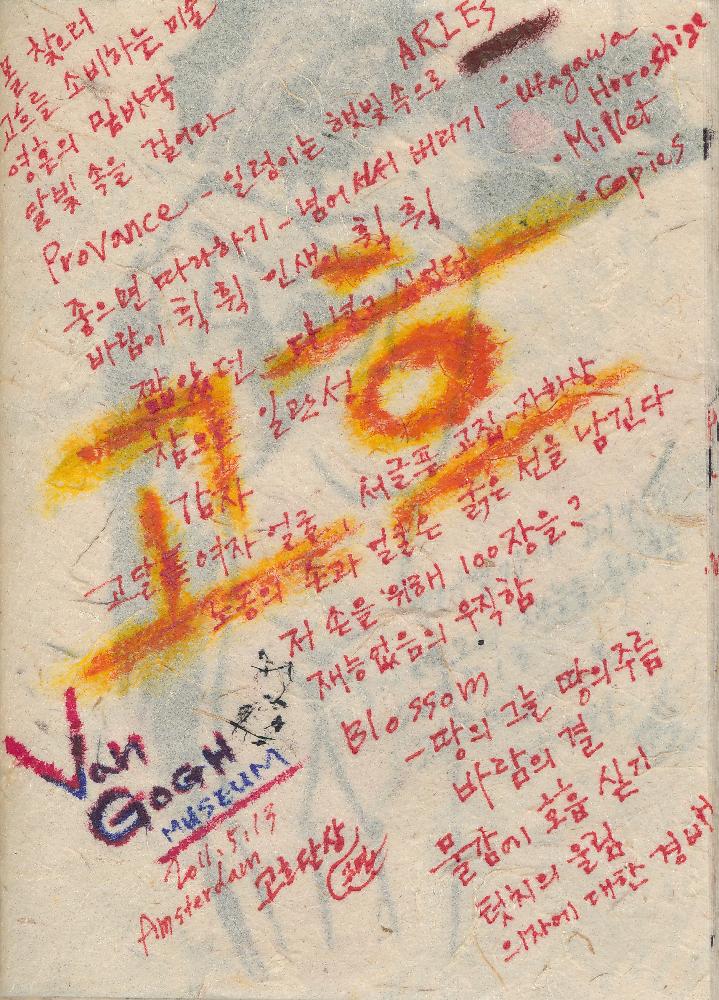 찾으러
고흐를 소비하는 미술
영혼의 밑바닥
달빛 속을 걸어다
ARLES
Provance - 일렁이는 햇빛 속으로
좋으면 따라하기 - 넘어서서 버리기 - Utagawa Horoshige
• Millet
• Copies
바람이 휙 휙 인생이 휙 휙
짧았던 - 다
참으로 일관성
고흐
감자 서글픈 고집 - 자화상
고달픈 여자 얼굴
노동의 손과 얼굴은 굵은 선을 남긴다
저 손을 위해 100장을?
재능없음의 우직함
Blossom
- 땅의 그늘 땅의 주름
바람의 결
물감에 호흡 싣기
텃치의 울림
의자에 대한 경배
Van
GOGH
MUSEUM
2011.5.13
Amsterdam
고흐단상